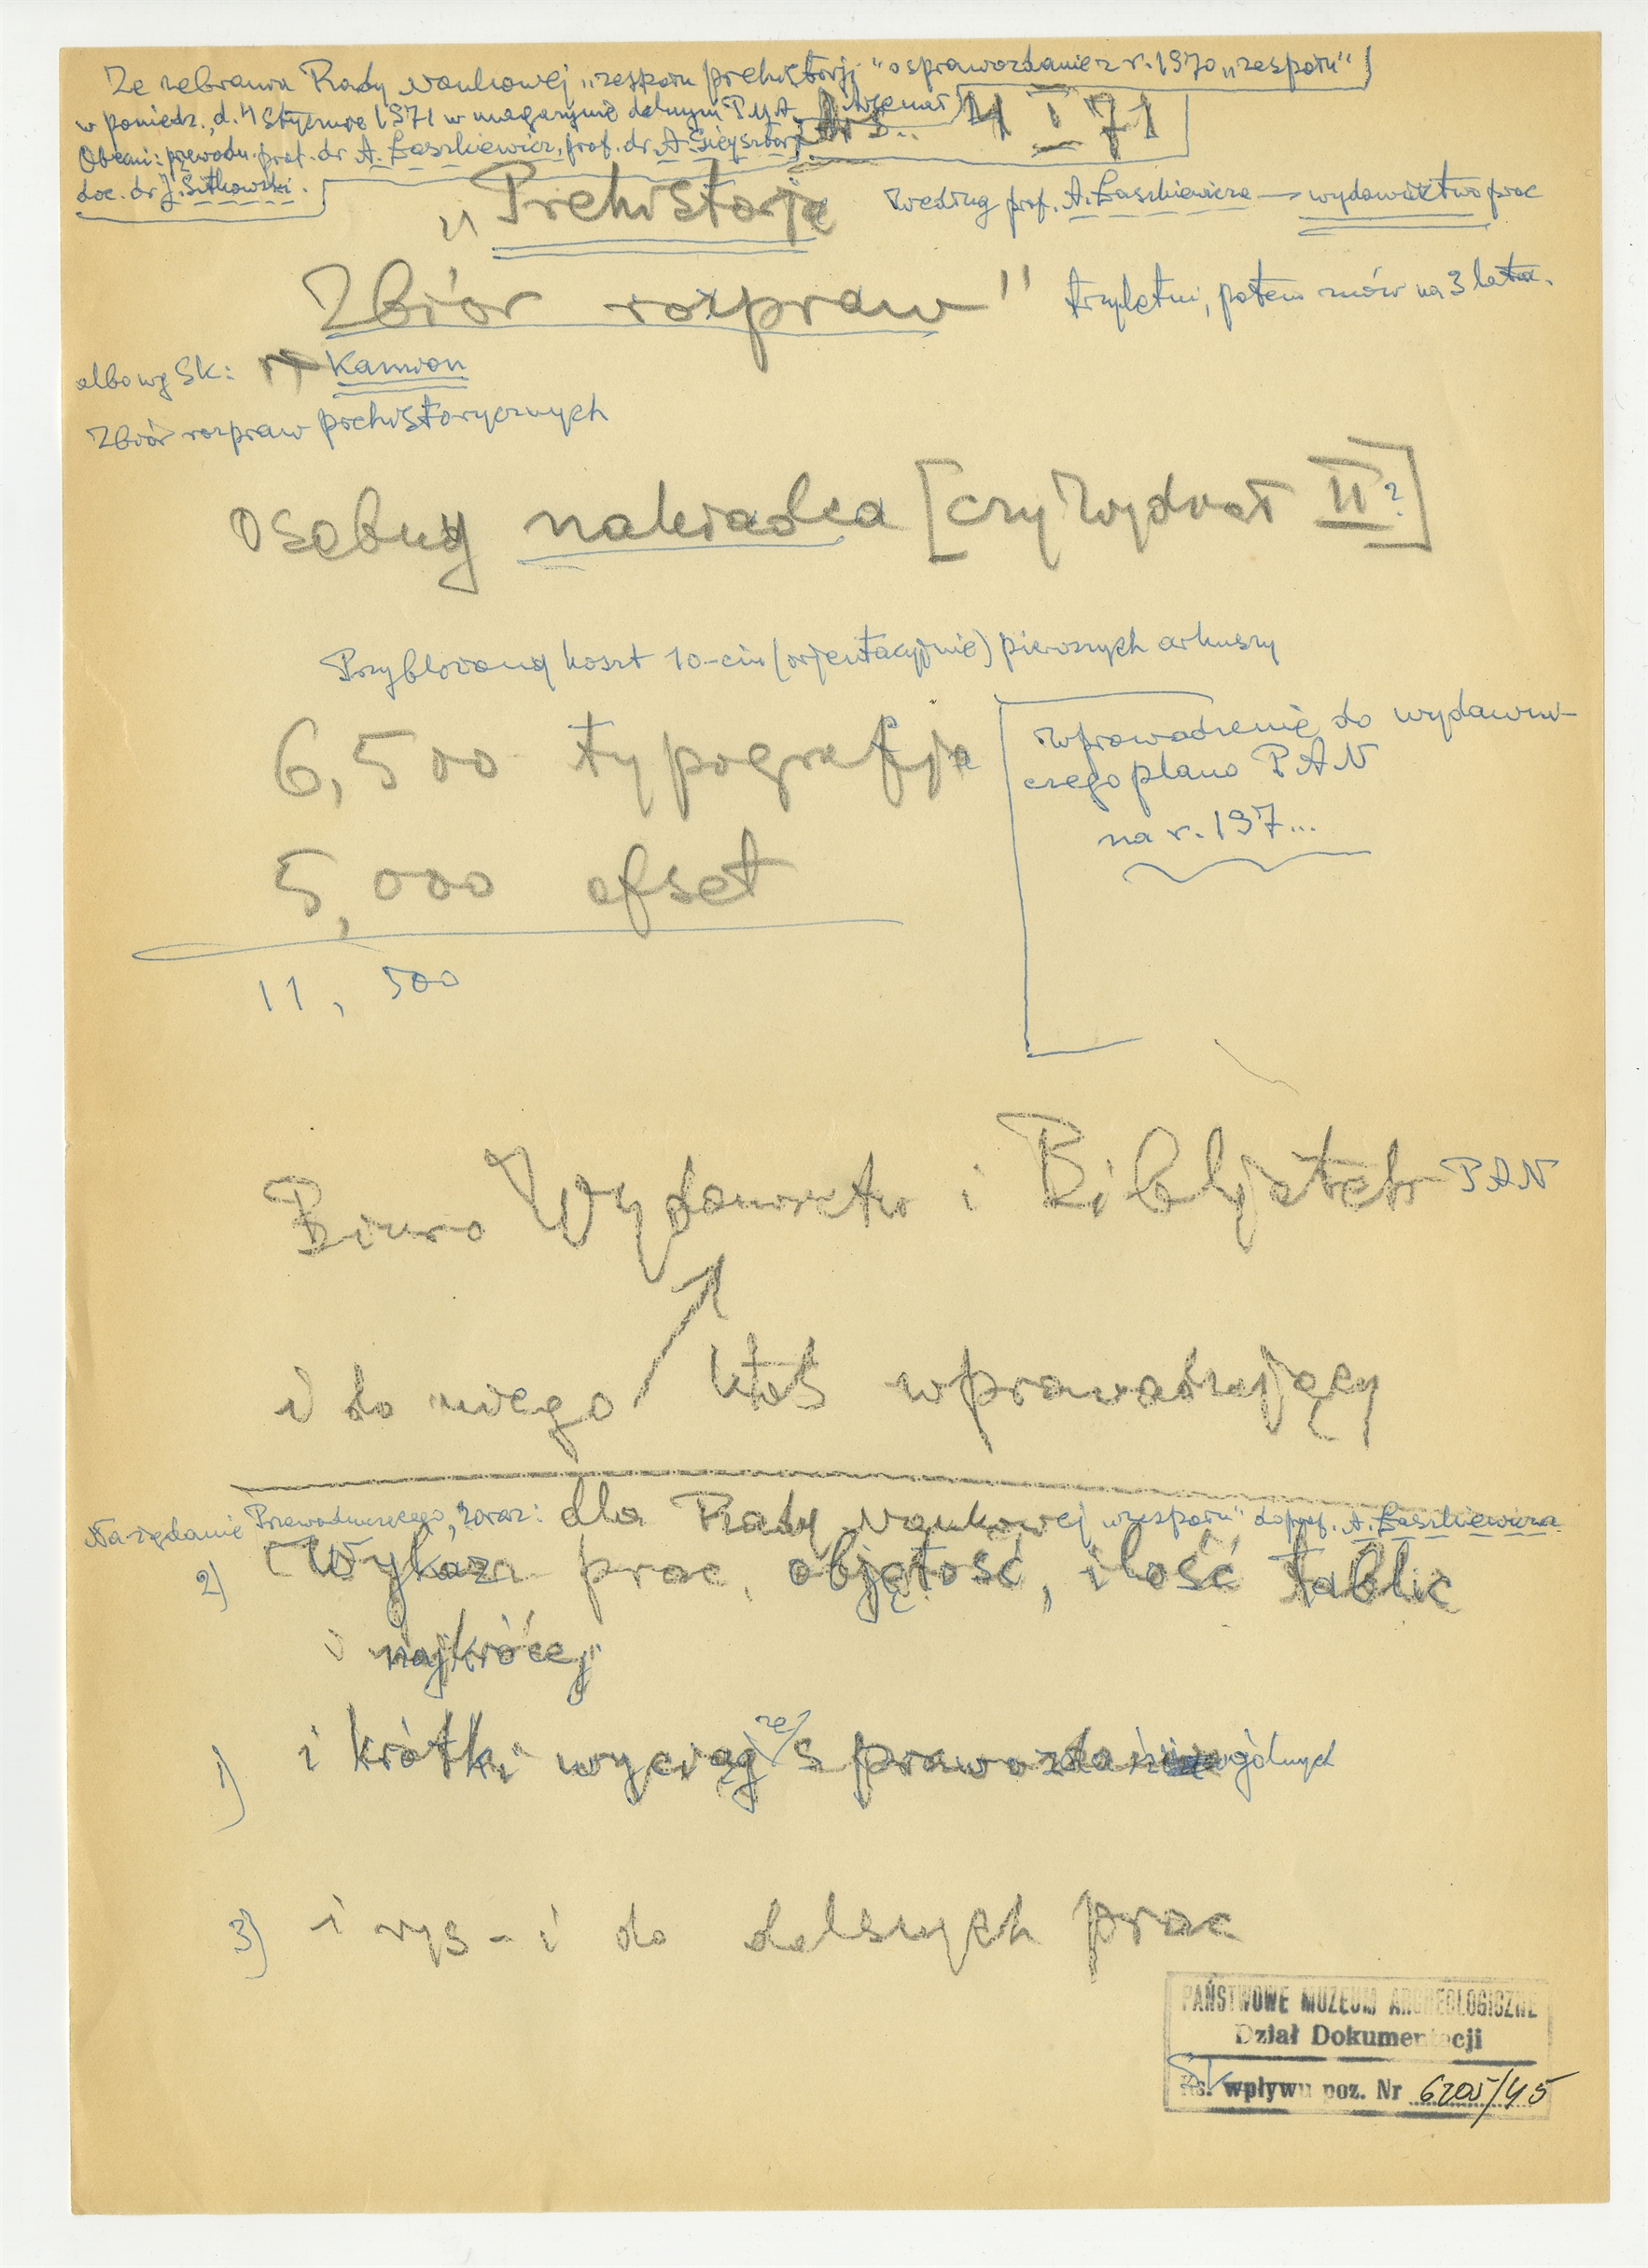 Ze zebrania Rady Naukowej „zespołu prehistorji" o sprawozdanie z r. 1970 „zespołu"
w poniedz., d. 4 stycznia 1971 w magazynie dolnym P.M.A. Arsenał
4 I 71
Obecni: przewodn. prof. dr A. Łaszkiewicz, prof. dr A. Gieysztor,
doc. dr J. Sitkowski.
„Prehistorja
Według prof. A. Łaszkiewicza → wydawnictwo prac
Zbiór rozpraw"
trzyletni, potem znów na 3 lata.
albo wg Sk: Kamion
Zbiór rozpraw prehistorycznych
Osobny nakładca [czy Wydział II?]
Przybliżony koszt 10-ciu (orjentacyjnie) pierwszych arkuszy
6,500 typografja
5,000 ofset
11,500
Wprowadzenie do wydawni-
czego planu PAN
na r. 197...
Biuro Wydawnictw i Bibljotek PAN
i do niego ktoś wprowadzający
Na żądanie Przewodniczącego, zaraz: dla Rady Naukowej „zespołu" do prof. A. Łaszkiewicza
2) Wykaz prac, objętość, ilość tablic
i najkrócej
1) i krótki wyciąg ze sprawozdań ogólnych
3) i rys-i do dalszych prac
PAŃSTWOWE MUZEUM ARCHEOLOGICZNE
Dział Dokumentacji
Ks. wpływu poz. Nr 6205/45